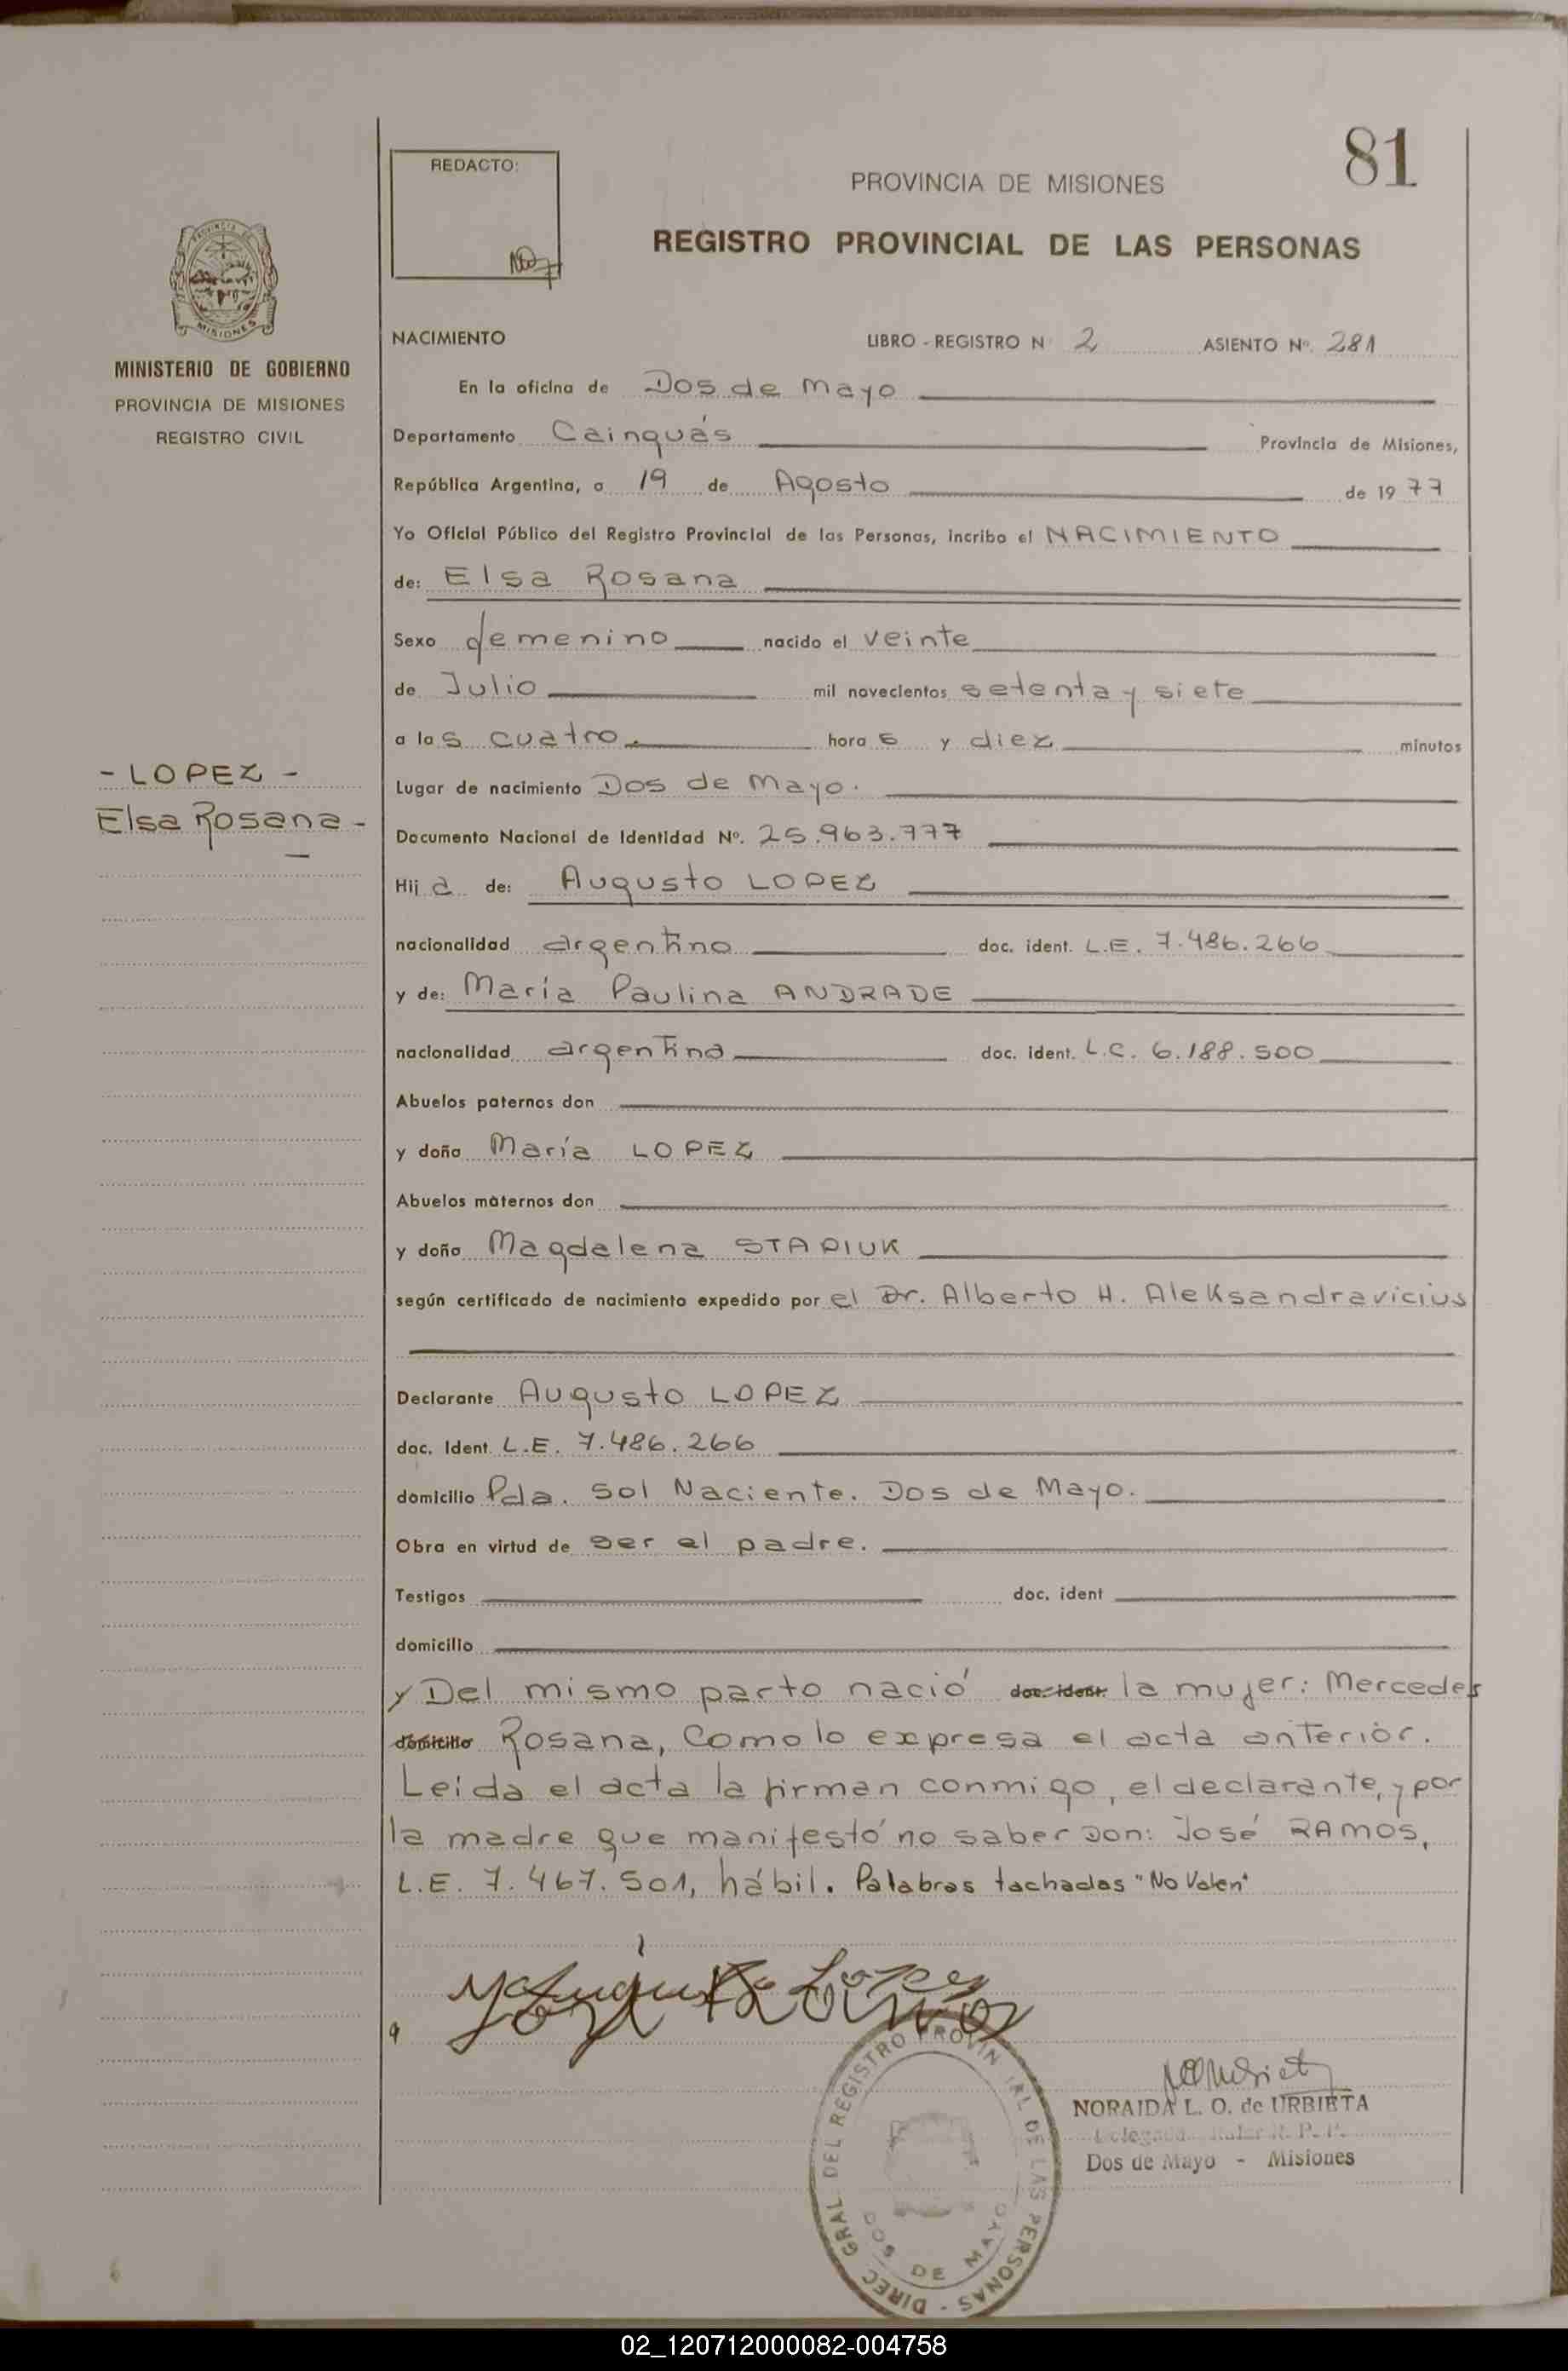 81
REDACTO:
PROVINCIA DE MISIONES
REGISTRO PROVINCIAL DE LAS PERSONAS
PROVINCIA DE
MISIONES
MINISTERIO DE GOBIERNO
PROVINCIA DE MISIONES
REGISTRO CIVIL
NACIMIENTO LIBRO - REGISTRO N 2 ASIENTO Nº. 281
En la oficina de Dos de Mayo
Departamento Cainguás Provincia de Misiones,
República Argentina, a 19 de Agosto de 1977
Yo Oficial Público del Registro Provincial de las Personas, incribo el NACIMIENTO
de: Elsa Rosana
Sexo femenino nacido el veinte
de Julio mil novecientos setenta y siete
a las cuatro. horas y diez minutos
- LOPEZ -
Elsa Rosana -
Lugar de nacimiento Dos de Mayo.
Documento Nacional de Identidad Nº. 25.963.777
Hija de: Augusto LOPEZ
nacionalidad argentino doc. ident. L.E. 7.486.266
y de: María Paulina ANDRADE
nacionalidad argentina doc. ident. L.C. 6.188.500
Abuelos paternos don
y doña María LOPEZ
Abuelos maternos don
y doña Magdalena STAPIUK
según certificado de nacimiento expedido por el Dr. Alberto H. Aleksandravicius
Declarante Augusto LOPEZ
doc. Ident. L.E. 7.486.266
domicilio Pda. Sol Naciente. Dos de Mayo.
Obra en virtud de ser el padre.
Testigos doc. ident
domicilio
y Del mismo parto nació doc. ident. la mujer: Mercedes
domicilio Rosana, Como lo expresa el acta anterior.
Leída el acta la firman conmigo, el declarante, y por
la madre que manifestó no saber Don: José RAMOS,
L.E. 7.467.501, hábil. Palabras tachadas "No Valen"
Augusto Lopez
José Ramos
NORAIDA L. O. de URBIETA
R. P. P.
Dos de Mayo - Misiones
DIREC GRAL DEL REGISTRO PROVINCIAL DE LAS PERSONAS -
DOS DE MAYO
02_120712000082-004758